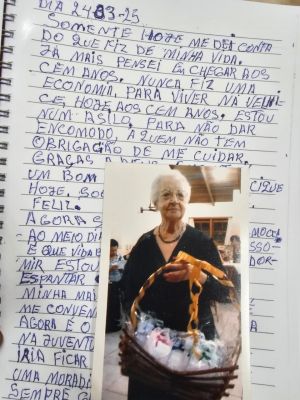 DIA 24-03-25
SOMENTE HOJE ME DEI CONTA
DO QUE FIZ DE MINHA VIDA.
JA MAIS PENSEI EM CHEGAR AOS
CEM ANOS. NUNCA FIZ UMA
ECONOMIA, PARA VIVER NA VELHI-
CE, HOJE AOS CEM ANOS. ESTOU
NUM ASILO, PARA NÃO DAR
ENCOMODO, A QUEM NÃO TEM
OBRIGAÇÃO DE ME CUIDAR.
GRAÇAS A
UM BOM CIQUE
HOJE,
FELIZ.
AGORA MOCO
AO MEIO DI SSO-
E QUE VIDA DOR-
MIR ESTOU
ESPANTAR
MINHA MA
ME CONVEN
AGORA É O
NA JUVENT
IRIA FICAR
UMA MORAD
SEMPRE